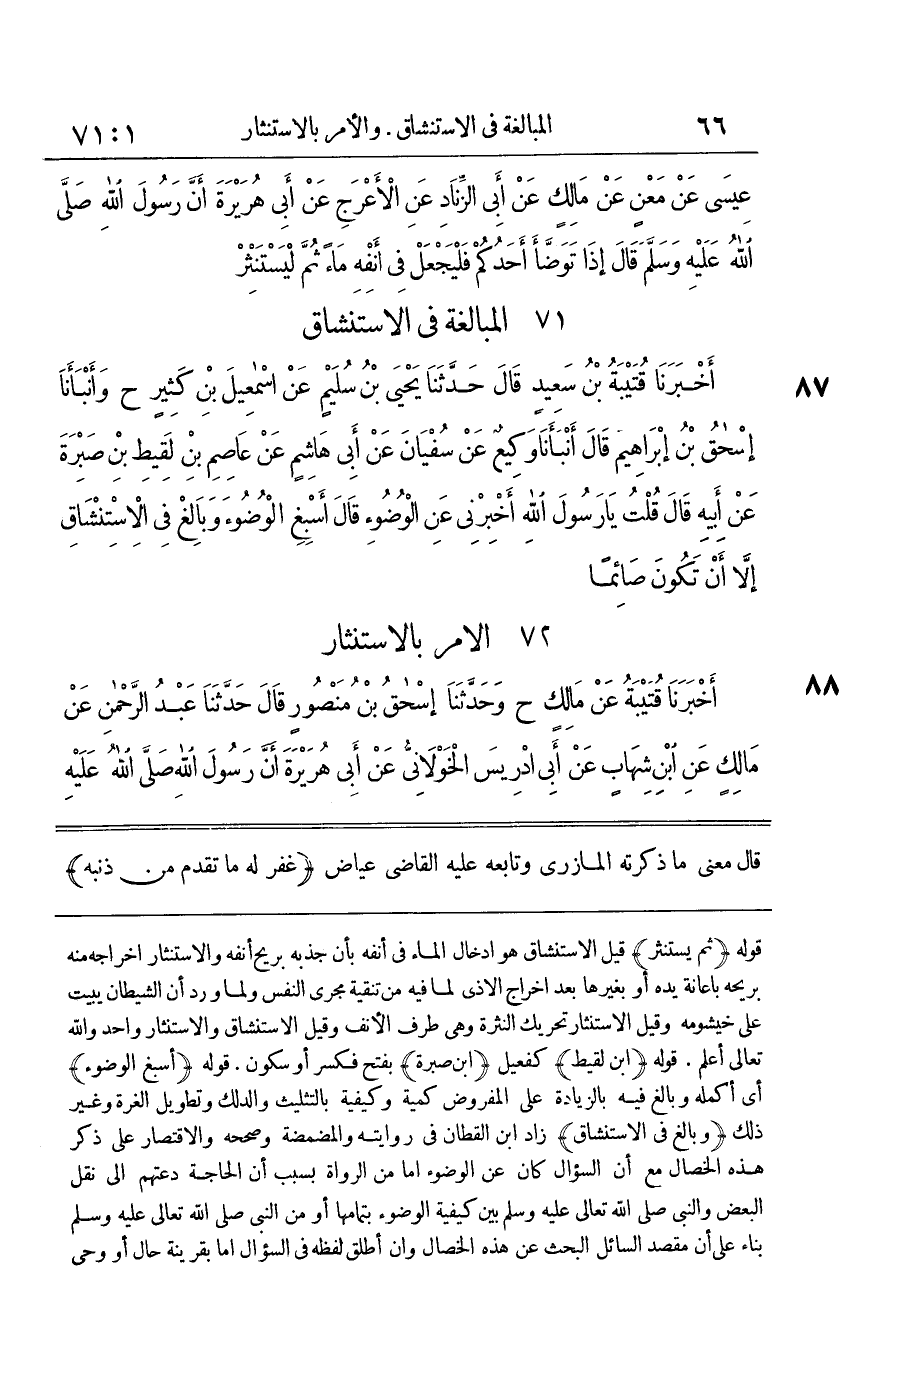 ٦٦ المبالغة فى الاستنشاق . والأمر بالاستنثار ٧١:١
عِيسَى عَنْ مَعْنٍ عَنْ مَالِكٍ عَنْ أَبِى الزِّنَادِ عَنِ الْأَعْرَجِ عَنْ أَبِى هُرَيْرَةَ أَنَّ رَسُولَ اللّٰهِ صَلَّى
اللّٰهُ عَلَيْهِ وَسَلَّمَ قَالَ إِذَا تَوَضَّأَ أَحَدُكُمْ فَلْيَجْعَلْ فِى أَنْفِهِ مَاءً ثُمَّ لْيَسْتَنْثِرْ
٧١ المبالغة فى الاستنشاق
٨٧ أَخْبَرَنَا قُتَيْبَةُ بْنُ سَعِيدٍ قَالَ حَدَّثَنَا يَحْيَى بْنُ سُلَيْمٍ عَنْ اسْمٰعِيلَ بْنِ كَثِيرٍ ح وَأَنْبَأَنَا
إِسْحٰقُ بْنُ إِبْرَاهِيمَ قَالَ أَنْبَأَنَا وَكِيعٌ عَنْ سُفْيَانَ عَنْ أَبِى هَاشِمٍ عَنْ عَاصِمِ بْنِ لَقِيطِ بْنِ صَبْرَةَ
عَنْ أَبِيهِ قَالَ قُلْتُ يَارَسُولَ اللّٰهِ أَخْبِرْنِى عَنِ الْوُضُوءِ قَالَ أَسْبِغِ الْوُضُوءَ وَبَالِغْ فِى الْاِسْتِنْشَاقِ
إِلَّا أَنْ تَكُونَ صَائِمًا
٧٢ الامر بالاستنثار
٨٨ أَخْبَرَنَا قُتَيْبَةُ عَنْ مَالِكٍ ح وَحَدَّثَنَا إِسْحٰقُ بْنُ مَنْصُورٍ قَالَ حَدَّثَنَا عَبْدُ الرَّحْمٰنِ عَنْ
مَالِكٍ عَنِ ابْنِ شِهَابٍ عَنْ أَبِى ادْرِيسَ الْخَوْلَانِىِّ عَنْ أَبِى هُرَيْرَةَ أَنَّ رَسُولَ اللّٰهِ صَلَّى اللّٰهُ عَلَيْهِ
قال معنى ما ذكرته المازرى وتابعه عليه القاضى عياض ﴿غفر له ما تقدم من ذنبه﴾
قوله ﴿ثم يستنثر﴾ قيل الاستنشاق هو ادخال الماء فى أنفه بأن جذبه بريح أنفه والاستنثار اخراجه منه
بريحه باعانة يده أو بغيرها بعد اخراج الاذى لما فيه من تنقية مجرى النفس ولما ورد أن الشيطان يبيت
على خيشومه وقيل الاستنثار تحريك النثرة وهى طرف الأنف وقيل الاستنشاق والاستنثار واحد والله
تعالى أعلم . قوله ﴿ابن لقيط﴾ كفعيل ﴿ابن صبرة﴾ بفتح فكسر أو سكون . قوله ﴿أسبغ الوضوء﴾
أى أكمله وبالغ فيه بالزيادة على المفروض كمية وكيفية بالتثليث والدلك وتطويل الغرة وغير
ذلك ﴿وبالغ فى الاستنشاق﴾ زاد ابن القطان فى روايته والمضمضة وصححه والاقتصار على ذكر
هذه الخصال مع أن السؤال كان عن الوضوء اما من الرواة بسبب أن الحاجة دعتهم الى نقل
البعض والنبى صلى الله تعالى عليه وسلم بين كيفية الوضوء بتمامها أو من النبى صلى الله تعالى عليه وسلم
بناء على أن مقصد السائل البحث عن هذه الخصال وان أطلق لفظه فى السؤال اما بقرينة حال أو وحى